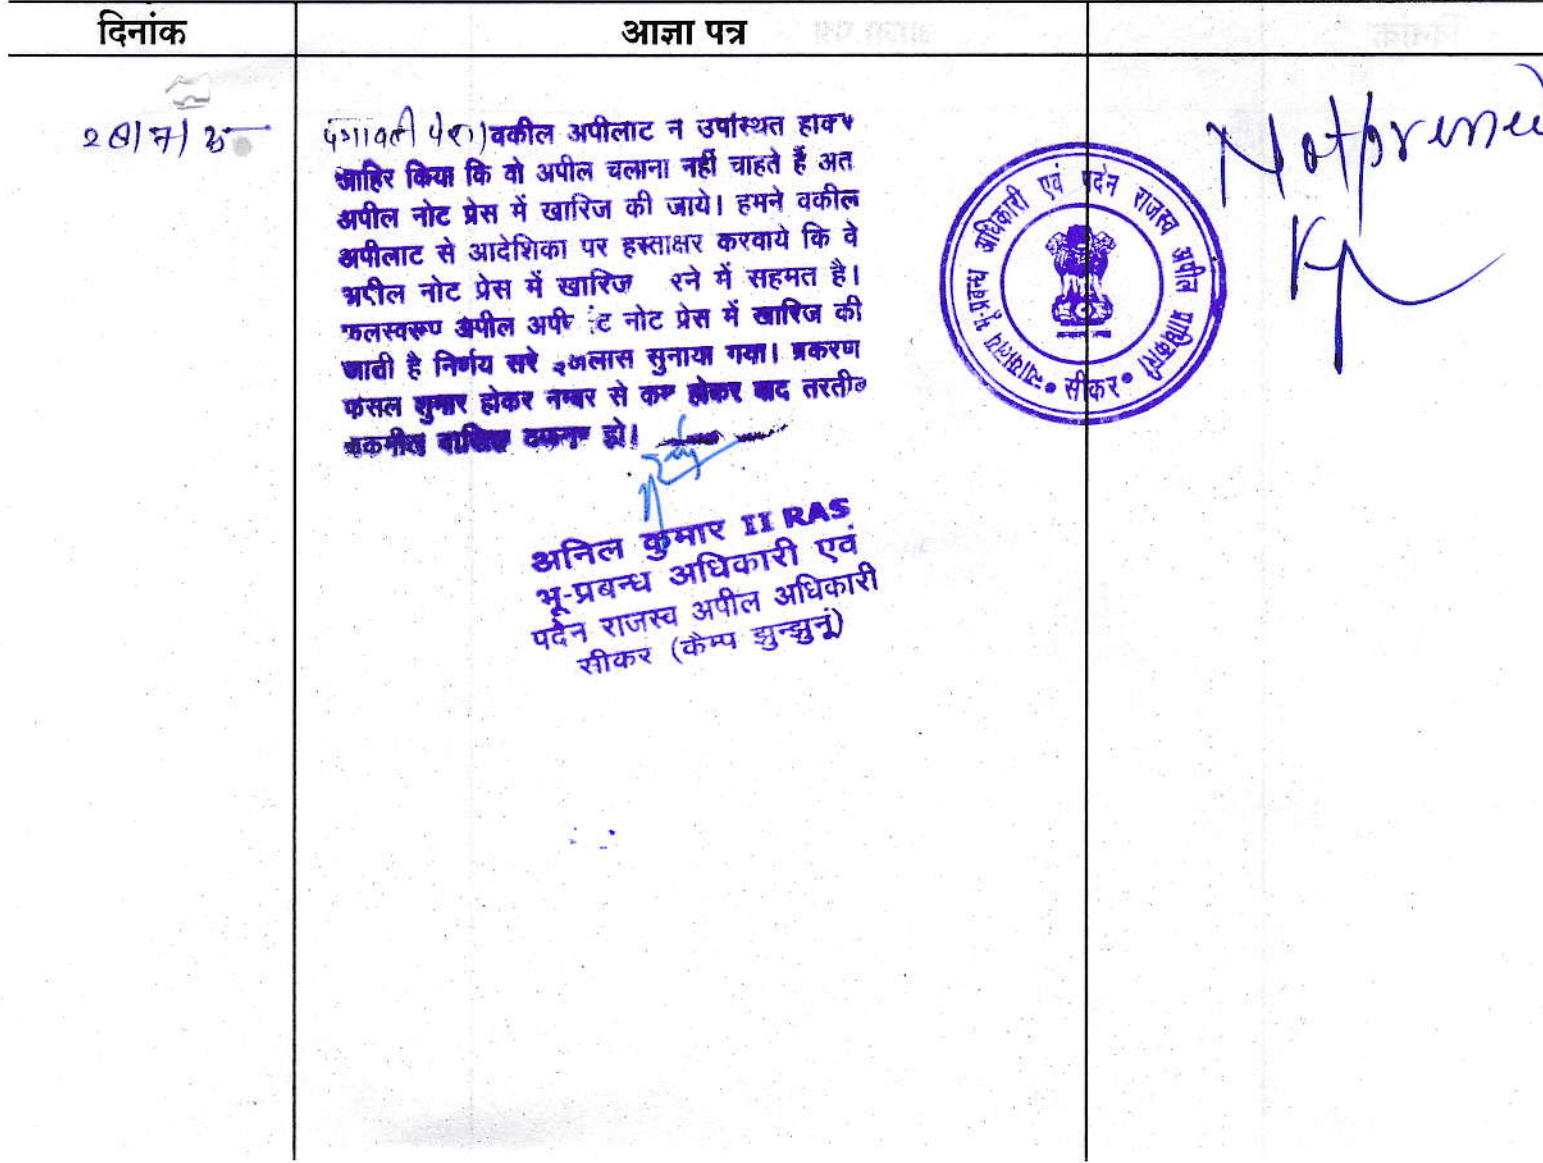 दिनांक
आज्ञा पत्र
पत्रावली पेश। वकील अपीलाट न उपस्थित होकर
जाहिर किया कि वो अपील चलाना नहीं चाहते हैं अत
अपील नोट प्रेस में खारिज की जाये। हमने वकील
अपीलाट से आदेशिका पर हस्ताक्षर करवाये कि वे
अपील नोट प्रेस में खारिज रने में सहमत है।
फलस्वरूप अपील नोट प्रेस में खारिज की
जाती है निर्णय सरे इजलास सुनाया गया। प्रकरण
फसल शुमार होकर नम्बर से कम होकर बाद तरतीब
तकमील दाखिल दफ्तर हो।
अनिल कुमार II RAS
भू-प्रबन्ध अधिकारी एवं
पदेन राजस्व अपील अधिकारी
सीकर (कैम्प झुन्झुनूं)
न्यायालय भू-प्रबन्ध अधिकारी एवं पदेन राजस्व अपील प्राधिकारी
• सीकर •